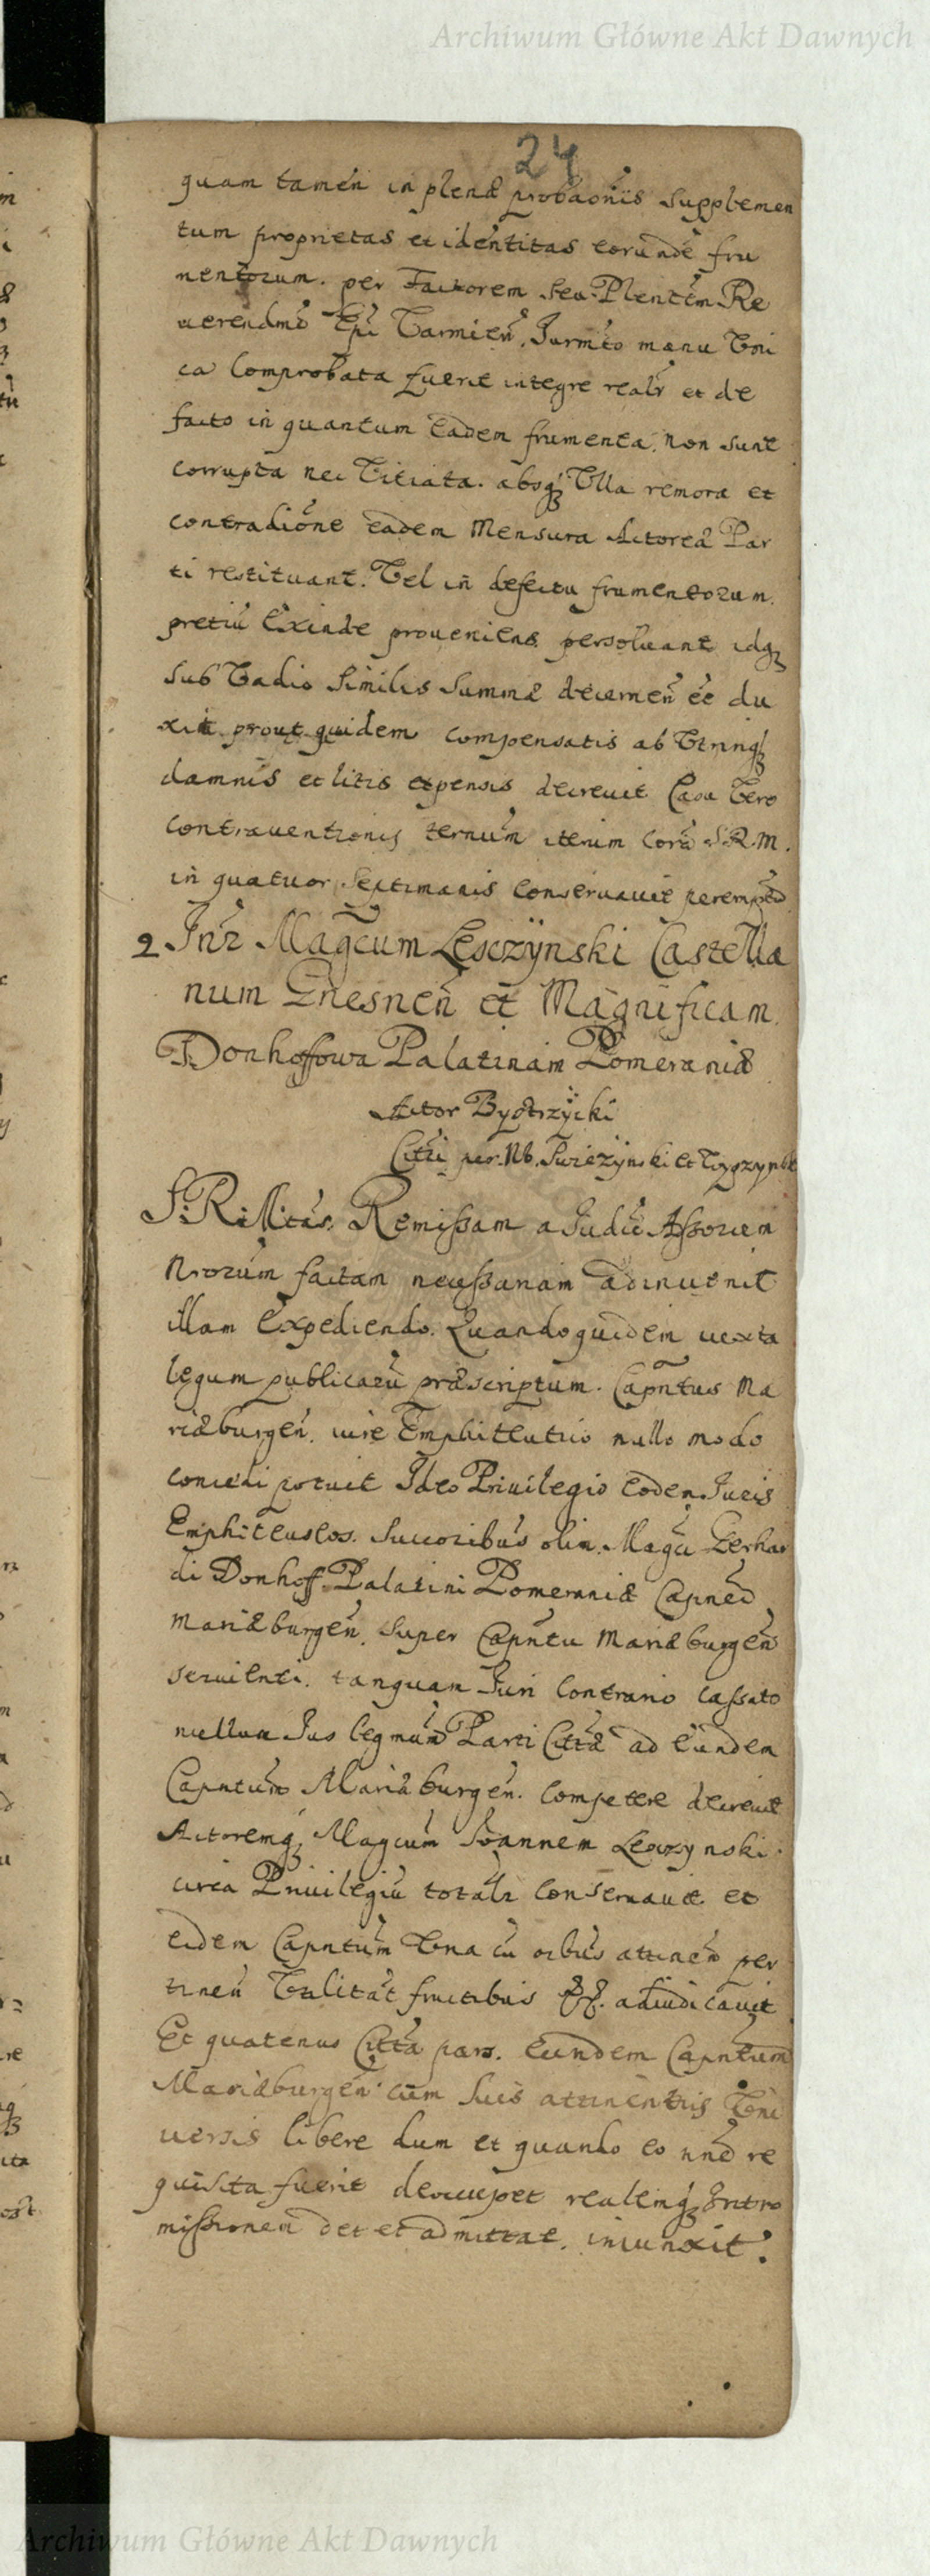 Archiwum Główne Akt Dawnych
24
quam tamen in plenæ probaonis supplemen
tum proprietas et identitas eorunde fru
mentorum. per Factorem seu Plentem Re
uerendmi Epi Varmien. Jurmto manu Vni
ca Comprobata fuerit integre realr et de
facto in quantum Eadem frumenta. non sunt
corrupta nec Vitiata. absq Vlla remora et
contradione eadem Mensura Actoreæ Par
ti restituant. Vel in defectu frumentorum.
pretiu Exinde proueniens persoluant idq
sub Vadio similis summæ decernen ee du
xit prout quidem compensatis ab Vtrinq
damnis et litis expensis decreuit Casu Vero
contrauentionis ternum iterum Cora S.R.M.
in quatuor septimanis Conseruauit
2. Intr Magcum Lesczÿnski Castella
num Gnesnen et Magnificam
Donhoffowa Palatinam Pomeraniæ
Actor Bystrzycki
Citti per Nb. Swiezynski et
S.R. Mttas. Remissam a Judic Assorum
Nrorum factam necessariam adinuenit
illam Expediendo. Quandoquidem iuxta
legum publicaru præscriptum. Capntus Ma
riæburgen. iure Emphiteutico nullo modo
concedi potuit Ideo Priuilegio Eodem Juris
Emphiteuseos. Succoribus olim Magci Gerhar
di Donhoff Palatini Pomeraniæ Capnei
Mariæburgen. super Capntu Mariæburgen
seruienti. tanquam Juri Contrario cassato
nullum Jus legmum Parti Cittæ ad Eundem
Capntum Mariæburgen. Competere decreuit
Actoremq Magcum Joannem Lesczynski.
circa Priuilegiu totalr Conseruauit et
eidem Capntum Vna cu oibus attinen per
tinen Vtilitat fructibus adiudicauit
Et quatenus Citta pars. Eundem Capntum
Mariæburgen cum suis attinentiis Vni
uersis libere dum et quando eo nne re
quisita fuerit deoccupet realemq Intro
missionem det et admittat. iniunxit.
Archiwum Główne Akt Dawnych